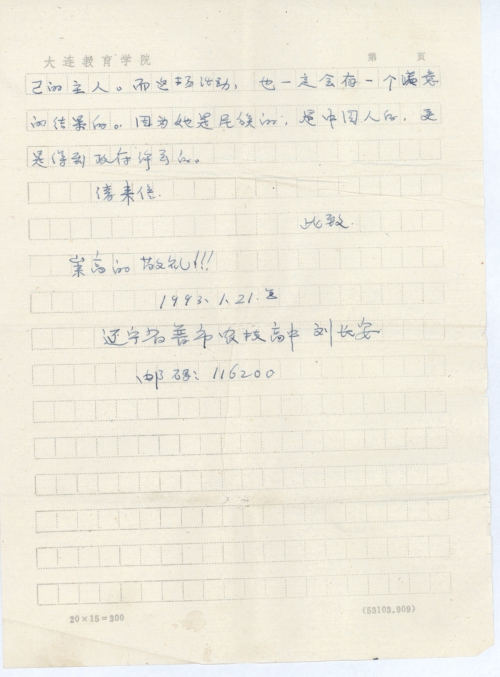 大连教育学院 第 页
己的主人。而这场活动，也一定会有一个满意
的结果的。因为她是民族的，是中国人的，更
是得到政府许可的。
请来信.
此致.
崇高的敬礼!!!
1993.1.21.
辽宁省普市农技高中 刘长安
邮码：116200
20×15=300 (53103.909)